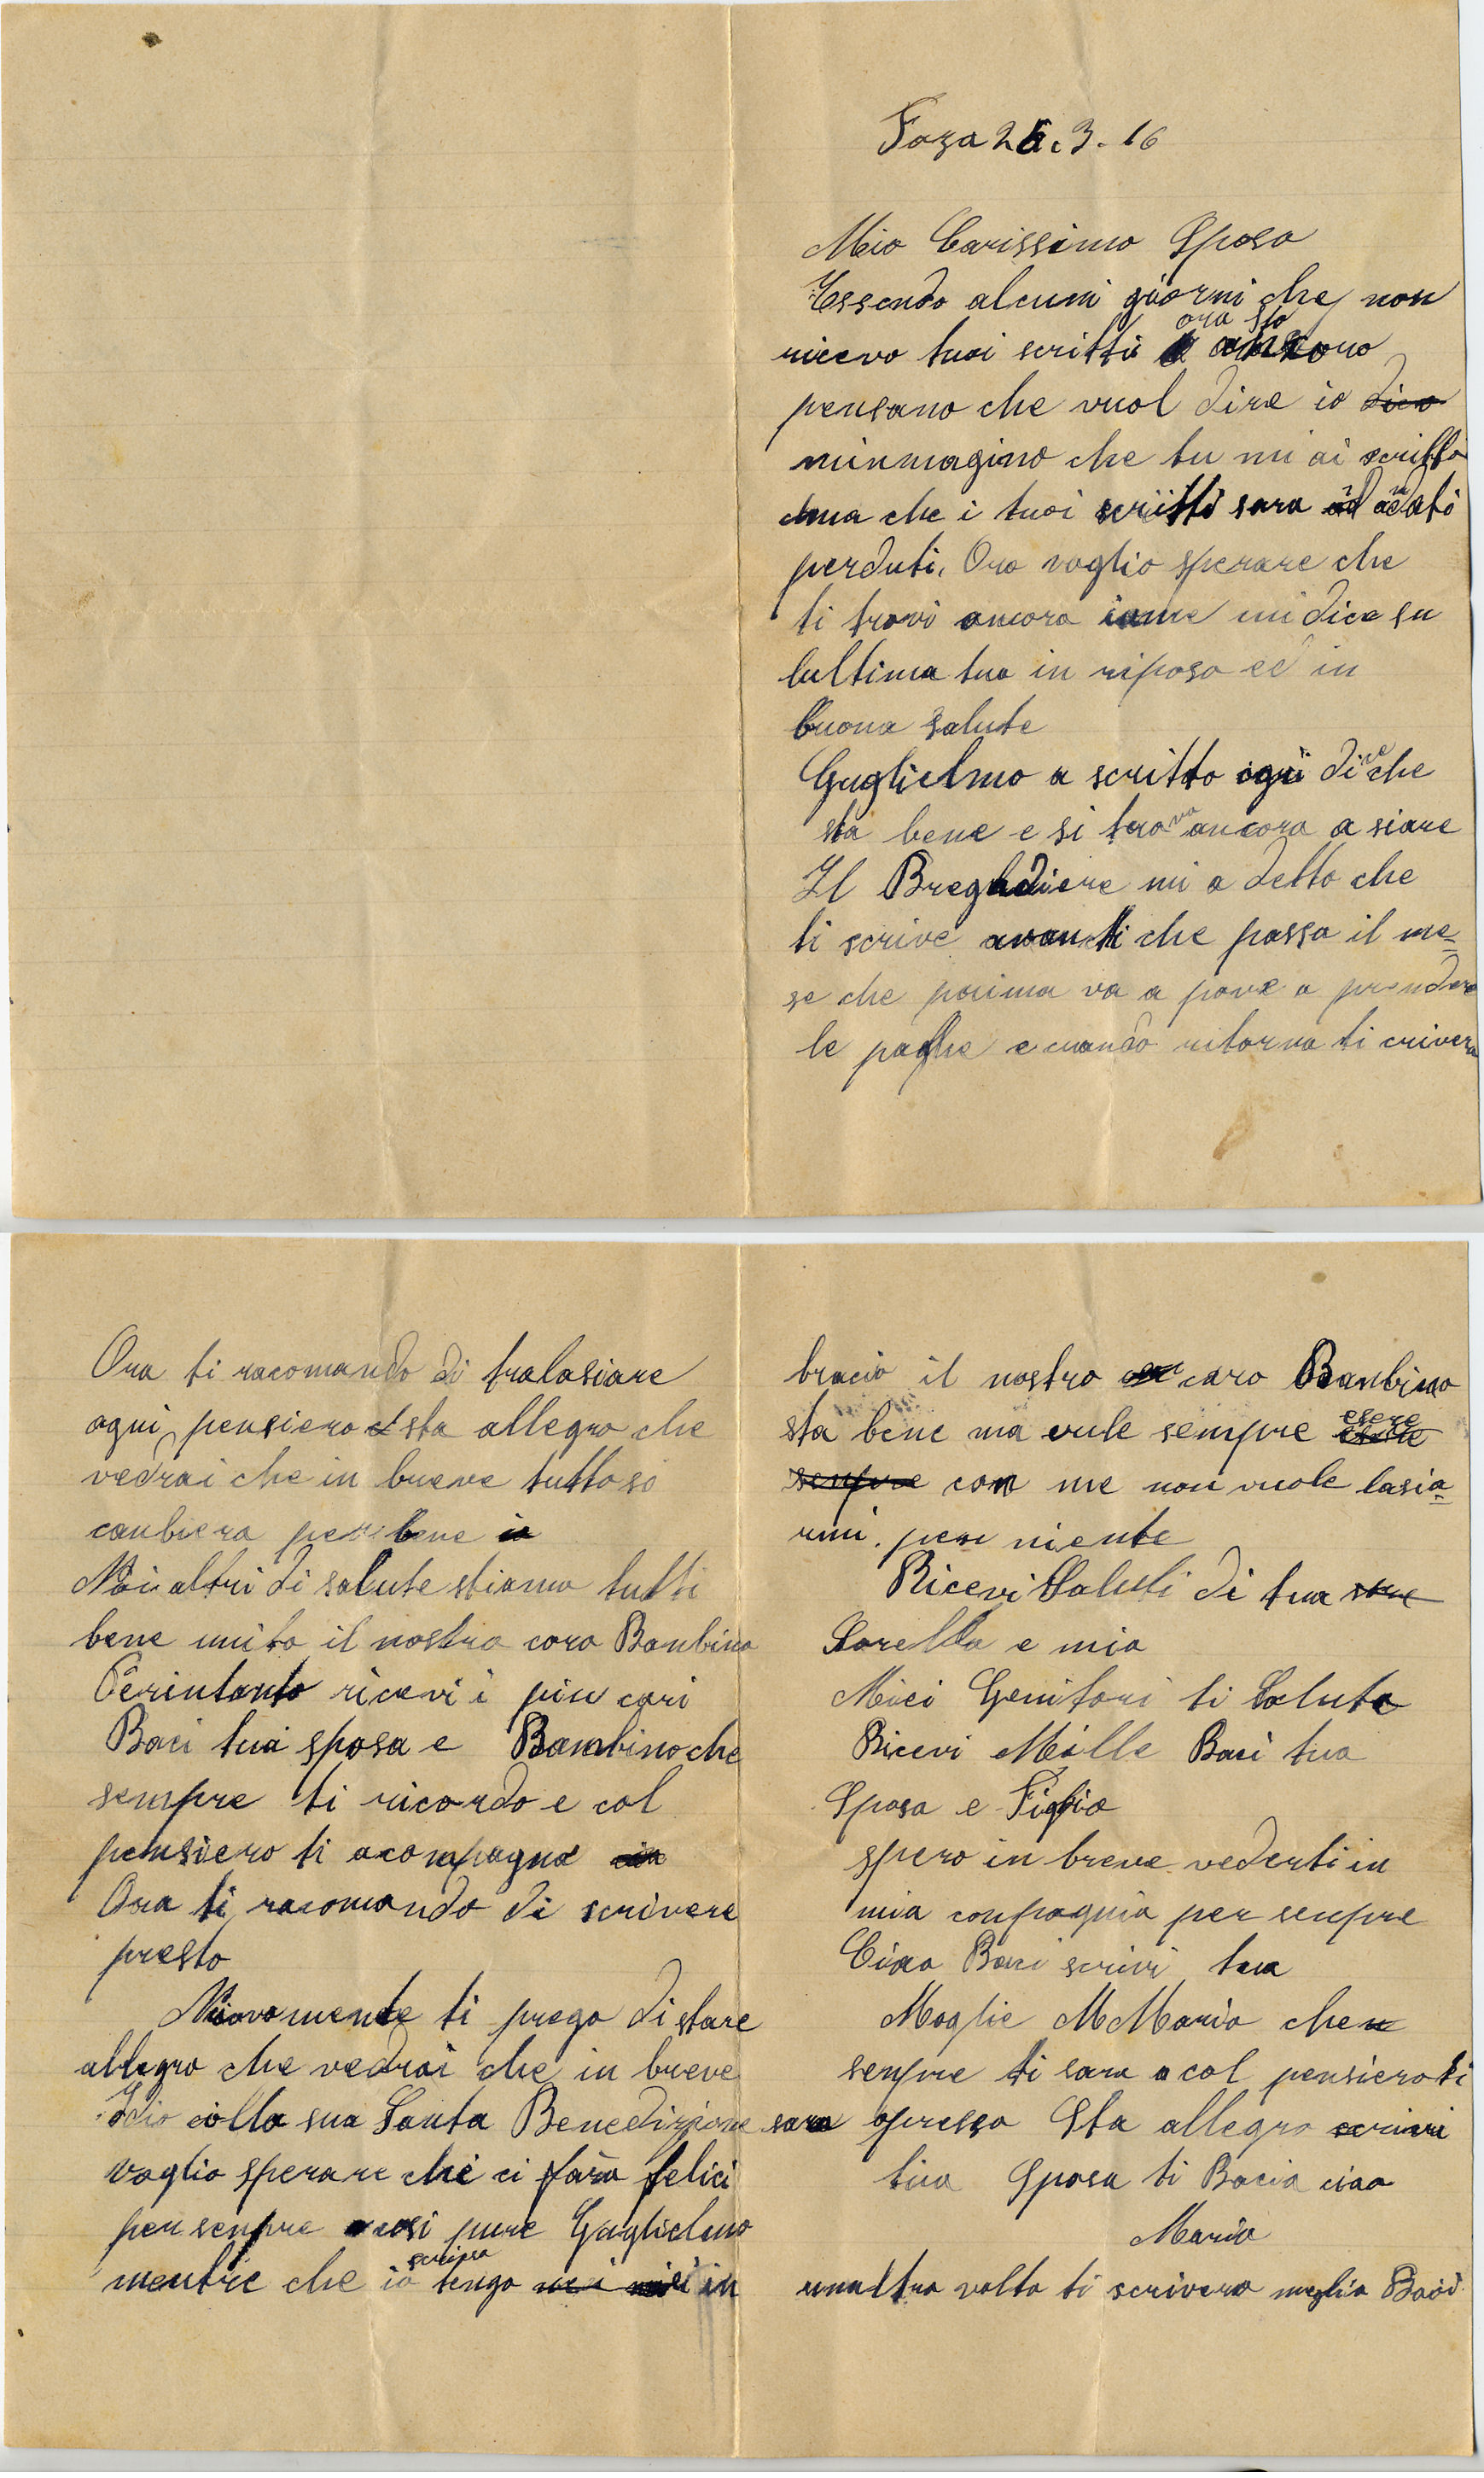 Foza 25.3.16
Mio Carissimo Sposo
Essendo alcuni giorni che non
ricevo tuoi scritti ora sto
pensano che vuol dire io dico
minmagino che tu mi ai scritto
ma che i tuoi scritti sara andati
perduti. Ora voglio sperare che
ti trovi ancora come mi dice su
lultima tua in riposo ed in
buona salute
Guglielmo a scritto ogi dice che
sta bene e si trova ancora a siare
Il Bregadiere mi a detto che
ti scrive avanti che passa il me=
se che prima va a pove a prendere
le paghe e cuando ritorna ti crivera
Ora ti racomando di tralasiare
ogni pensiero e sta allegro che
vedrai che in breve tutto si
canbiera per bene io
Noi altri di salute stiamo tutti
bene unito il nostro caro Banbino
Perintanto ricevi i piu cari
Baci tua sposa e Bambino che
sempre ti ricordo e col
pensiero ti acompagna
Ora ti racomando di scrivere
presto
Nuovamente ti prego di stare
allegro che vedrai che in breve
Idio colla sua Santa Benedizione
voglio sperare che ci fara felici
per senpre cosi pure Guglielmo
mentre che io scrivo tengo in
bracio il nostro caro Banbino
sta bene ma vule sempre esere
senpre con me non vuole lasia=
rmi per niente
Ricevi Saluti di tua
Sorella e mia
Miei Genitori ti Saluta
Ricevi Mille Baci tua
Sposa e Figlio
spero in breve vederti in
mia conpagnia per senpre
Ciao Baci scrivi tua
Moglie M Maria che
senpre ti sara a col pensiero ti
sara apresso Sta allegro scrivi
tua Sposa ti Bacia ciao
Maria
unaltra volta ti scrivero meglio Baci